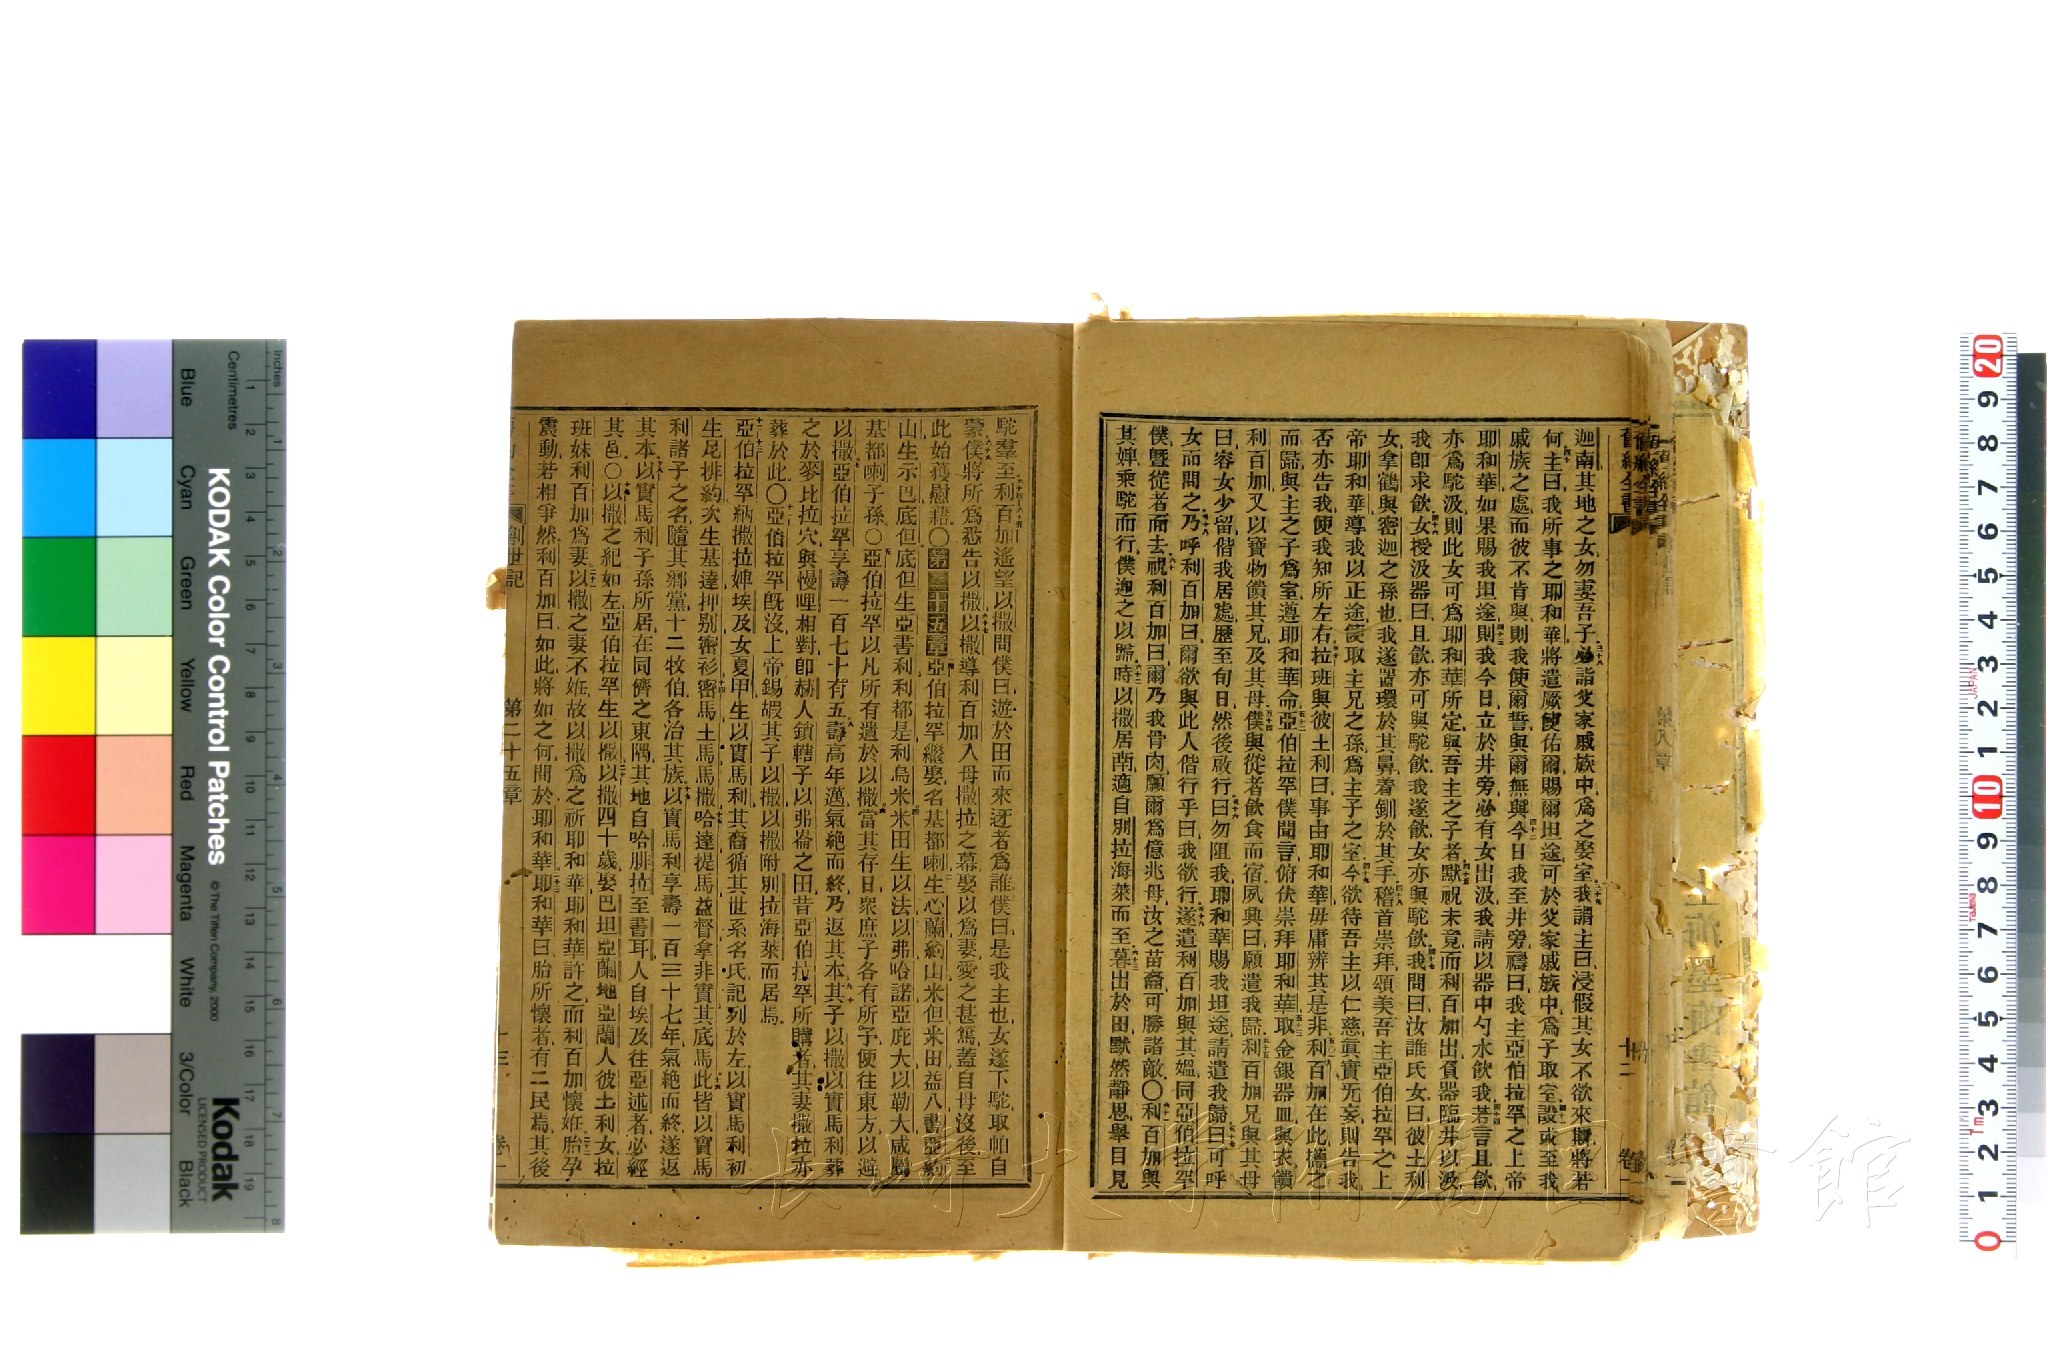 迦南其地之女勿妻吾子必詣父家戚族中爲之娶室我謂主曰浸假其女不欲來歟將若
何主曰我所事之耶和華將遣厥使佑爾賜爾坦途可於父家戚族中爲子取室設或至我
戚族之處而彼不肯與則我使爾誓與爾無與今日我至井旁禱曰我主亞伯拉罕之上帝
耶和華如果賜我坦途則我今日立於井旁必有女出汲我請以器中勺水飲我若言且飲
亦爲駝汲則此女可爲耶和華所定與吾主之子者默祝未竟而利百加出負器臨井以汲
我卽求飲女授汲器曰且飲亦可與駝飲我遂飲女亦與駝飲我問曰汝誰氏女曰彼土利
女拿鶴與密迦之孫也我遂置環於其鼻着釧於其手稽首崇拜頌美吾主亞伯拉罕之上
帝耶和華導我以正途簽取主兄之孫爲主子之室今欲待吾主以仁慈眞實旡妄則告我
否亦告我使我知所左右拉班與彼土利曰事由耶和華毋庸辨其是非利百加在此攜之
而歸與主之子爲室遵耶和華命亞伯拉罕僕聞言俯伏崇拜耶和華取金銀器皿與衣饋
利百加又以寶物饋其兄及其母僕與從者飲食而宿夙興曰願遣我歸利百加兄與其母
曰容女少留偕我居處歷至旬日然後啟行曰勿阻我耶和華賜我坦途請遣我歸曰可呼
女而問之乃呼利百加曰爾欲與此人偕行乎曰我欲行遂遣利百加與其媼同亞伯拉罕
僕暨從者而去祝利百加曰爾乃我骨肉願爾爲億兆母汝之苗裔可勝諸敵〇利百加與
其婢乘駝而行僕迦之以歸時以撒居南適自別拉海萊而至暮出於田默然靜思舉目見
駝羣至利百加遙望以撒問僕曰遊於田而來迓者爲誰僕曰是我主也女遂下駝取帕自
蒙僕將所爲悉告以撒以撒導利百加入母撒拉之幕娶以爲妻愛之甚篤蓋自母沒後至
此始獲慰藉〇第二十五章亞伯拉罕繼娶名基都喇生心蘭約山米但米田益八書亞約
山生示巴底但底但生亞書利利都是利烏米米田生以法以弗哈諾亞庇大以勒大咸屬
基都喇子孫〇亞伯拉罕以凡所有遺於以撒當其存日衆庶子各有所予便往東方以避
以撒亞伯拉罕享壽一百七十有五壽高年邁氣絕而終乃返其本其子以撒以實馬利葬
之於麥比拉穴與幔哩相對卽赫人鎖轄子以弗崙之田昔亞伯拉罕所購者其妻撒拉亦
葬於此〇亞伯拉罕旣沒上帝錫嘏其子以撒以撒附別拉海萊而居焉
亞伯拉罕納撒拉婢埃及女夏甲生以實馬利其裔循其世系名氏記列於左以實馬利初
生尼排約次生基達押別密衫密馬土馬馬撒哈達提馬益督拿非實其底馬此皆以實馬
利諸子之名隨其鄉黨十二牧伯各治其族以實馬利享壽一百三十七年氣絕而終遂返
其本以實馬利子孫所居在同儕之東隅其地自哈腓拉至書耳人自埃及往亞述者必經
其邑〇以撒之紀如左亞伯拉罕生以撒以撒四十歲娶巴坦亞蘭地亞蘭人彼土利女拉
班妹利百加爲妻以撒之妻不姙故以撒爲之祈耶和華耶和華許之而利百加懷姙胎孕
震動若相爭然利百加曰如此將如之何問於耶和華耶和華曰胎所懷者有二民焉其後
創世記 第二十五章 十三 卷一
KODAK Color Control Patches
© The Tiffen Company, 2000
Kodak
LICENSED PRODUCT
Inches
Centimetres
Blue
Cyan
Green
Yellow
Red
Magenta
White
3/Color
Black
長崎大學附屬圖書館
JAPAN